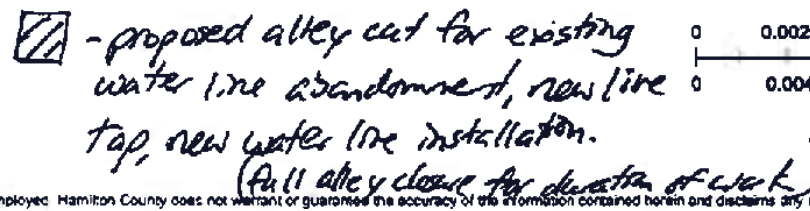 - proposed alley cut for existing
water line abandonment, new line
tap, new water line installation.
(full alley closure for duration of work
0 0.002
0 0.004
mployed. Hamilton County does not warrant or guarantee the accuracy of the information contained herein and disclaims any